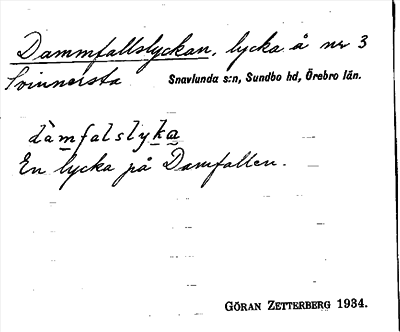 Dammfallslyckan, lycka å nr 3
Svinnersta Snavlunda s:n, Sundbo hd, Örebro län.
dàmfalslyka
En lycka på Damfallen.
GÖRAN ZETTERBERG 1934.